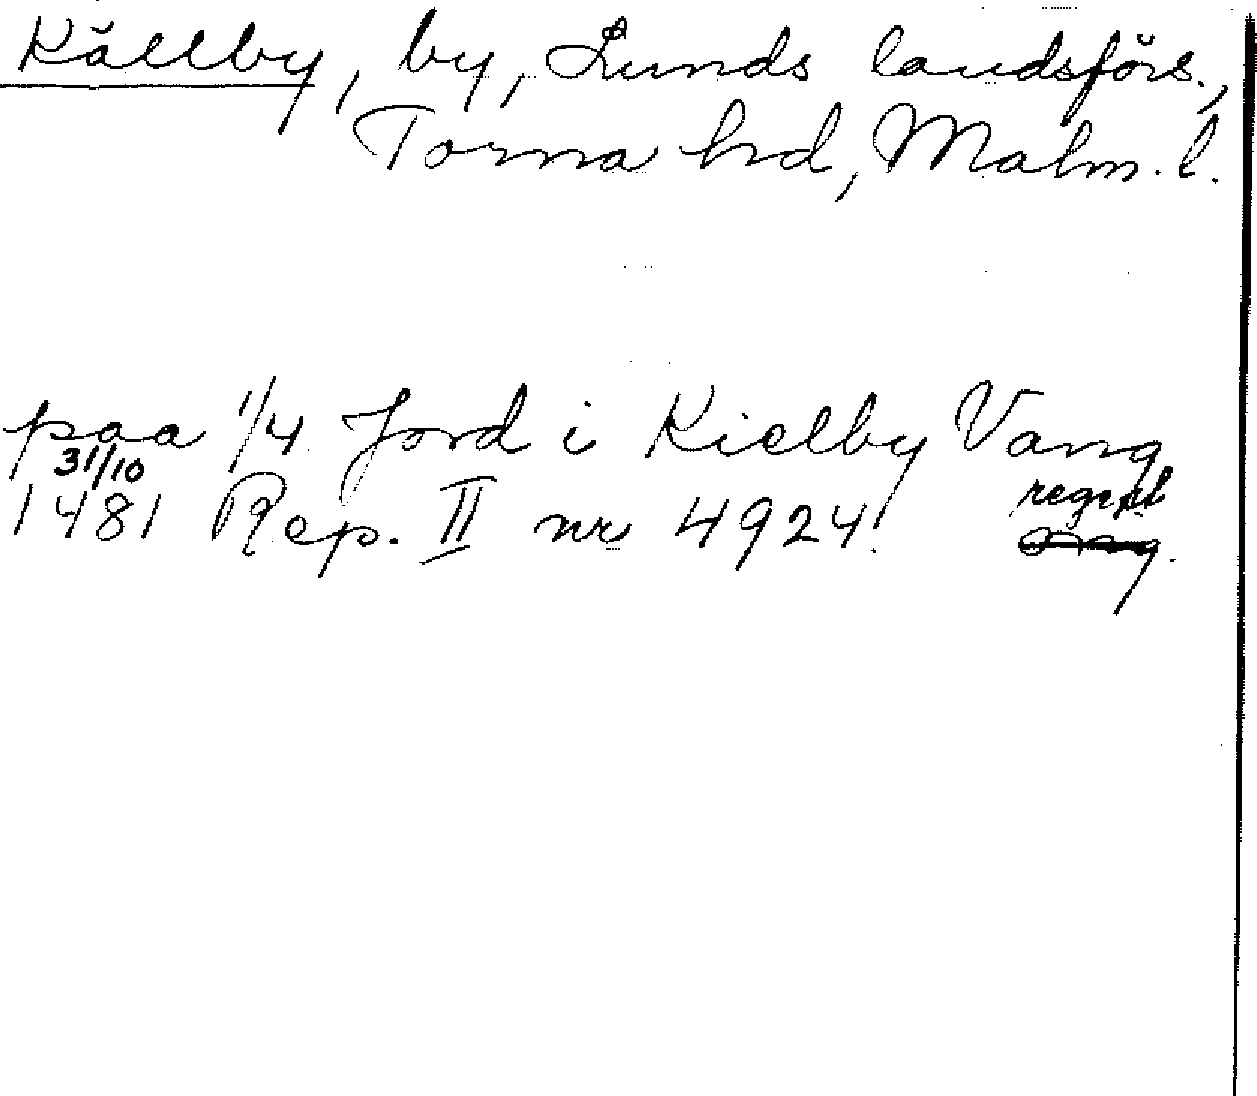 Källby, by, Lunds landsförs.,
Torna hd, Malm. l.
paa 1/4 Jord i Kielby Vang
31/10
1481 Rep. II nr 4924. regest